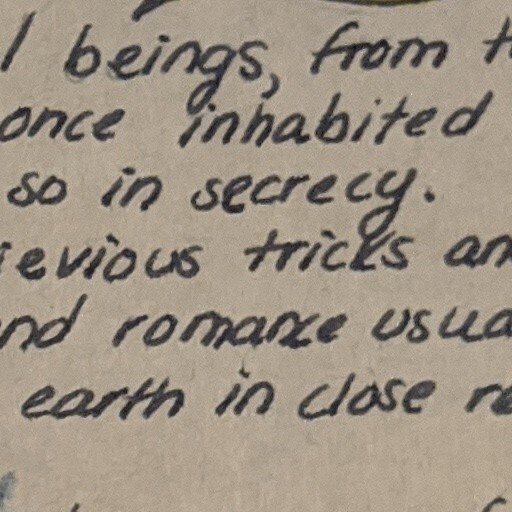 l beings, from t
once inhabited
so in secrecy.
ievious tricks an
nd romance usua
earth in close re